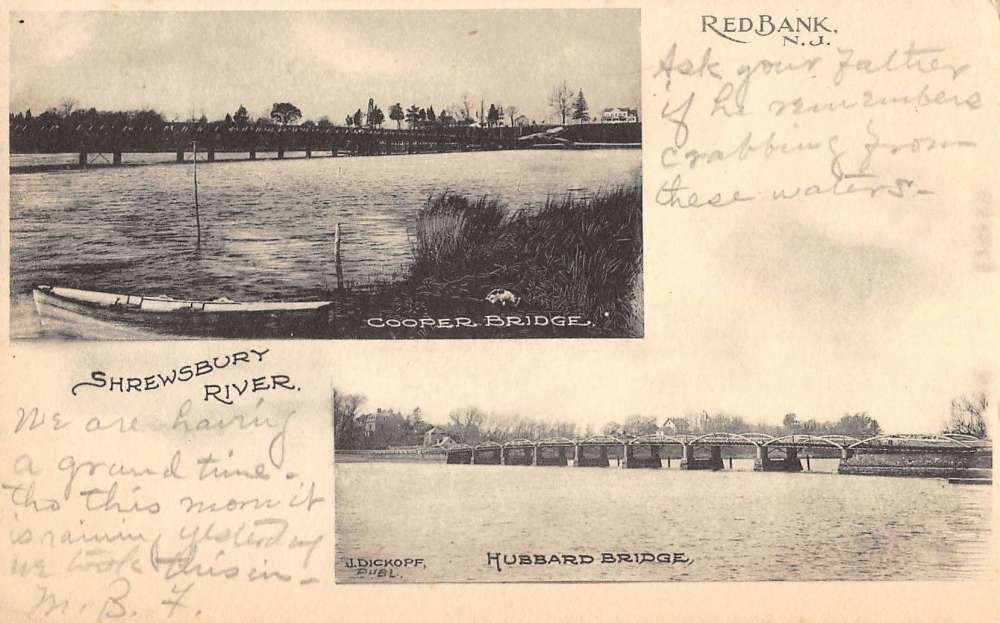 RED BANK,
N.J.
Ask your Father
if he remembers
crabbing from
these waters-
COOPER BRIDGE.
SHREWSBURY
RIVER.
We are having
a grand time-
tho this morn it
is raining yesterday
we took this in-
M. B. F.
J. DICKOPF,
PUBL.
HUBBARD BRIDGE,